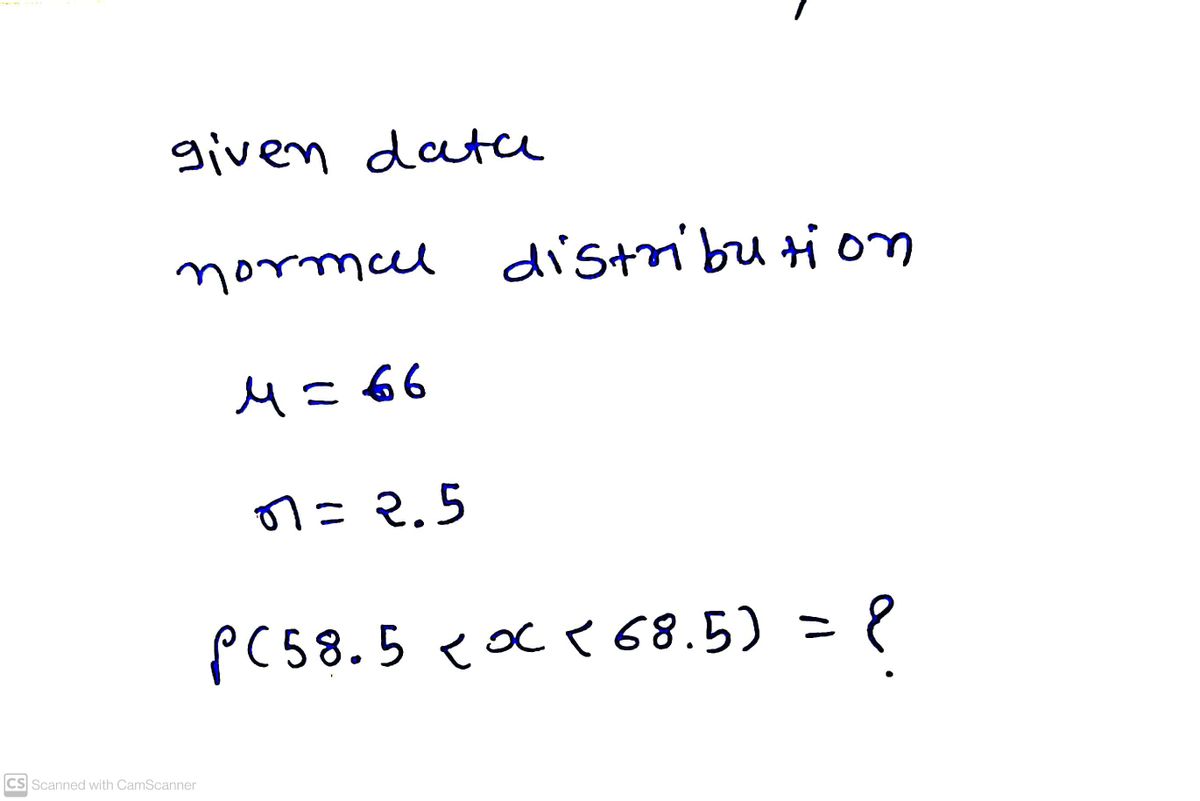 given data
normal distribution
μ = 66
σ = 2.5
P(58.5 < x < 68.5) = ?
CS Scanned with CamScanner